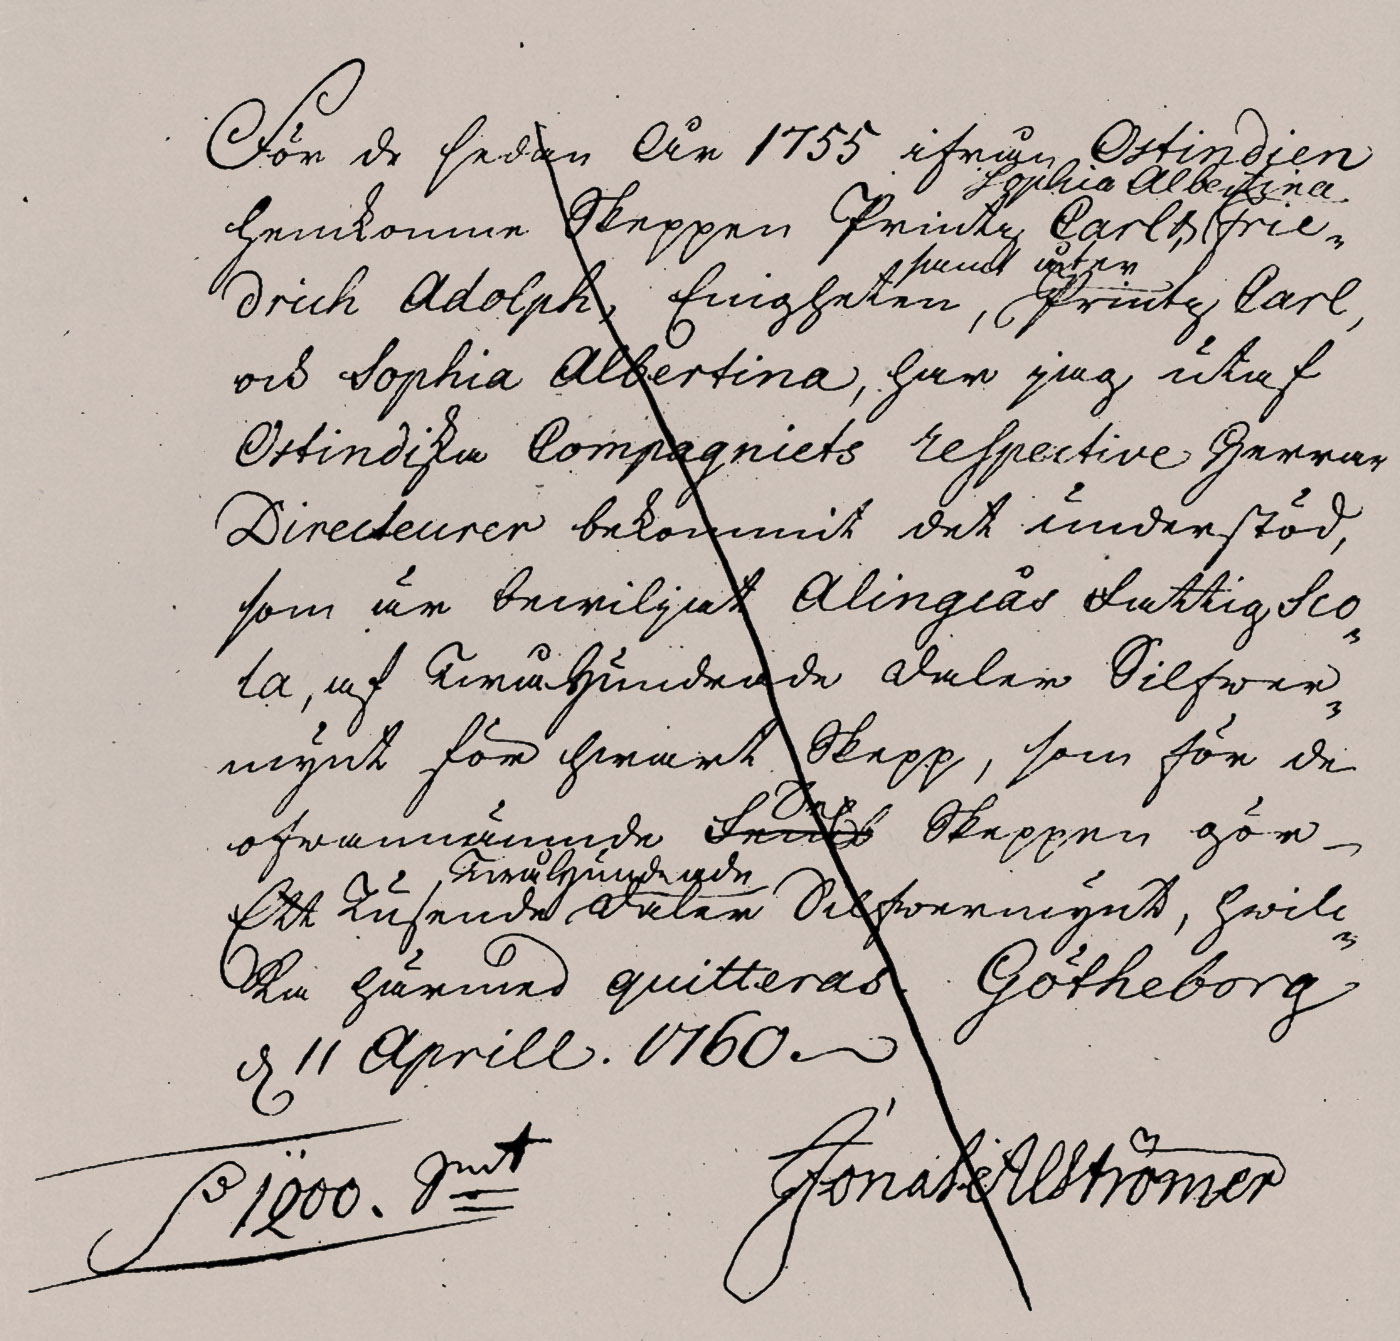 För de sedan År 1755 ifrån Ostindien
Sophia Albertina
hemkomne Skeppen Printz Carl, Frie-
samt åter
drich Adolph, Enigheten, Printz Carl,
och Sophia Albertina, har jag utaf
Ostindiska Compagniets respective Herrar
Directeurer bekommit det understöd,
som är bewiljat Alingsås Fattig Sco-
la, af Twåhundrade Daler Silfwer-
mynt för hwart Skepp, som för de
Sex
ofwannämnde Skeppen gör
Twåhundrade
Ett Tusende Daler Silfwermynt, hwil-
ka härmed quitteras. Götheborg
d 11 Aprill. 1760.
Jonas Alströmer
1200. Smt